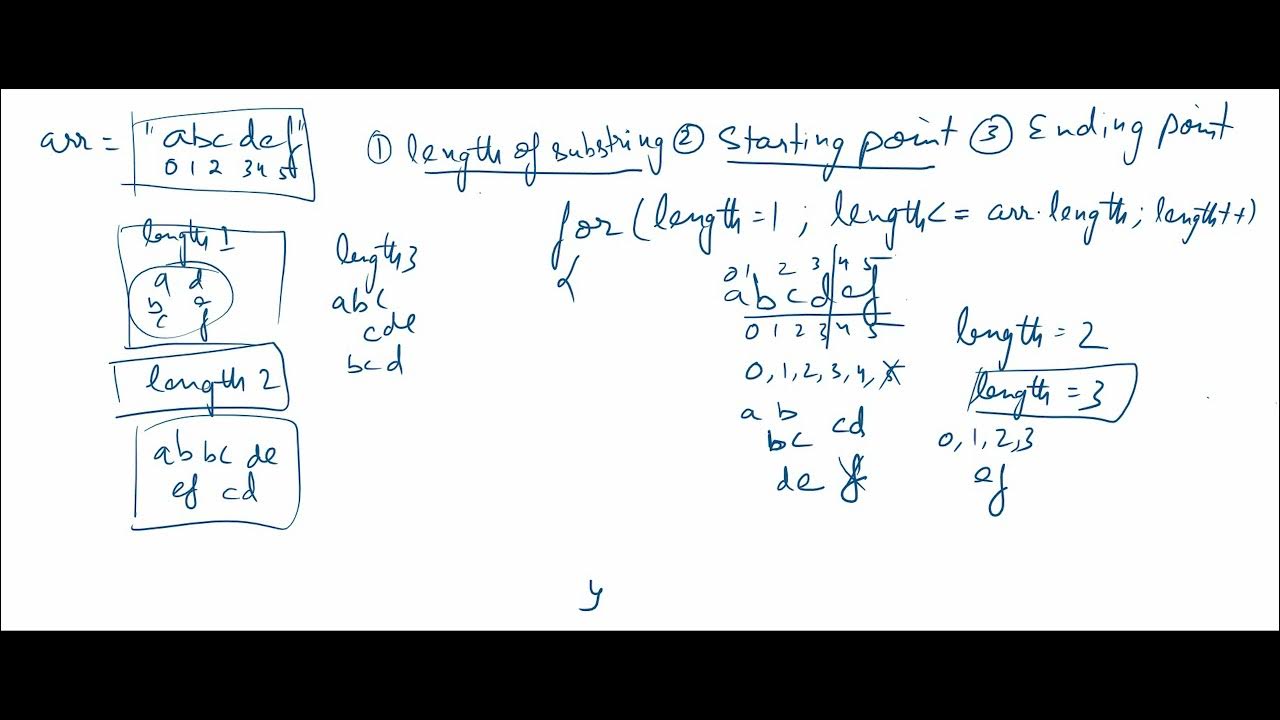 arr = "abcdef" ① length of substring ② Starting point ③ Ending point
0 1 2 3 4 5
for (length = 1 ; length <= arr.length; length++)
{
length 1
a d
b e
c f
length 2
ab bc de
ef cd
length 3
abc
cde
bcd
0 1 2 3 4 5
abcdef
0 1 2 3 4 5
0, 1, 2, 3, 4, 5
ab
bc cd
de f
length = 2
length = 3
0, 1, 2, 3
ef
}